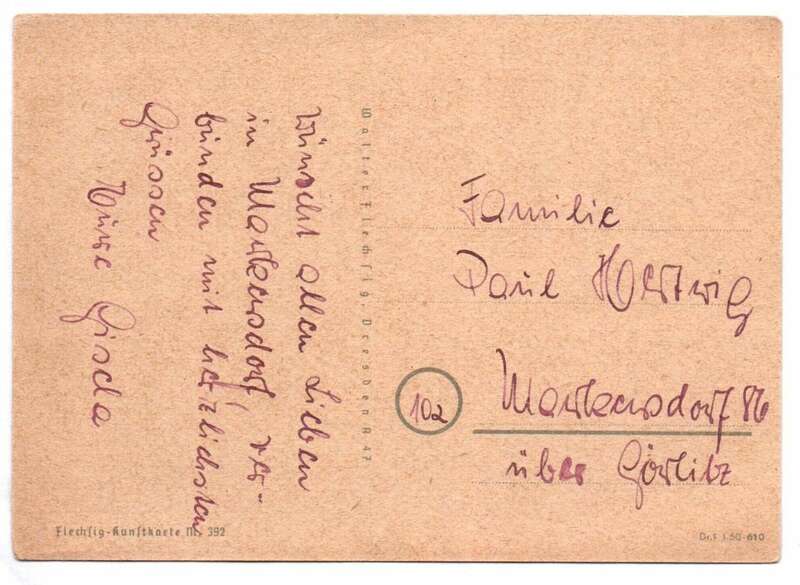 Wünscht allen Lieben
in Markersdorf, ver-
bunden mit herzlichsten
Grüssen
Eure Gisela
Walter Flechsig, Dresden A 47
Familie
Paul Hertwig
10a
Markersdorf 86
über Görlitz
Flechsig-Kunstkarte Nr. 392
Dr.F 1 50 610